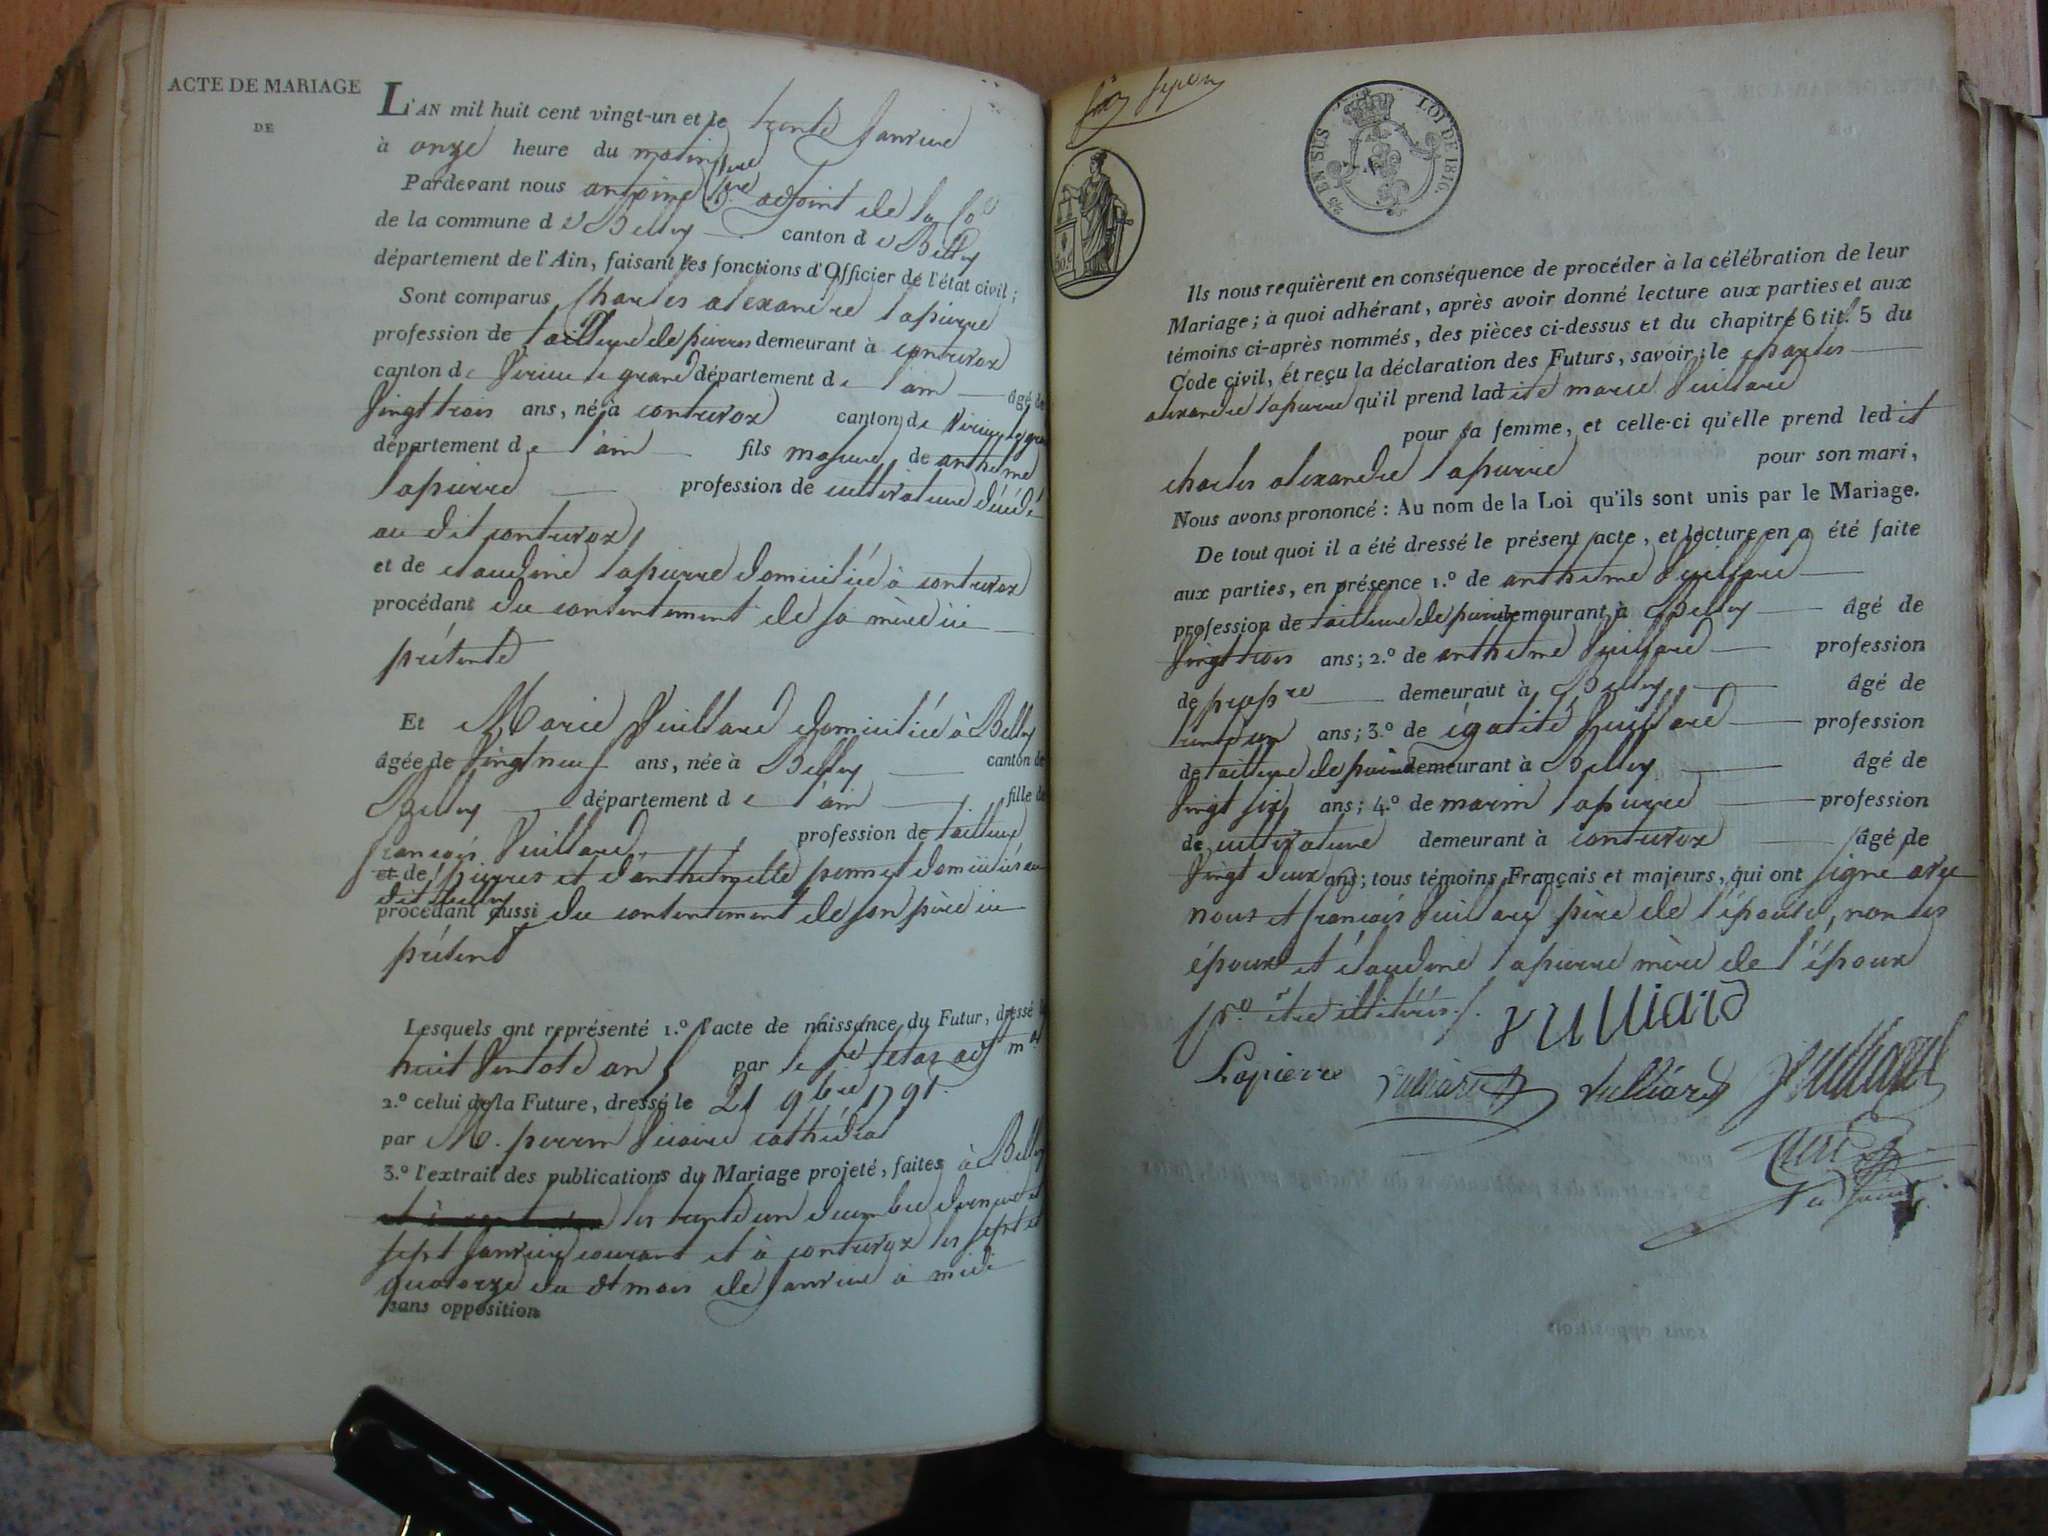 ACTE DE MARIAGE
DE
L'AN mil huit cent vingt-un et le trente Janvier
à onze heure du matin
Pardevant nous antoine adjoint de la
de la commune de Belley canton de Belley
département de l'Ain, faisant les fonctions d'Officier de l'état civil;
Sont comparus Charles alexandre lapierre
profession de tailleur de pierres demeurant à contrevoz
canton de Virieu le grand département de l'ain âgé de
Vingt trois ans, né à contrevoz canton de Virieu le grand
département de l'ain fils majeur de antheme
lapierre profession de cultivateur décédé
au dit contrevoz
et de claudine lapierre domiciliée à contrevoz
procédant du consentement de sa mère ici
présente
Et Marie Vuillard domiciliée à Belley
âgée de Vingt neuf ans, née à Belley canton de
Belley département de l'ain fille de
françois Vuillard profession de tailleur
et de pierres et d'anthelmette perret domiciliés au
dit Belley
procédant aussi du consentement de son père ici
présent
Lesquels ont représenté 1.º l'acte de naissance du Futur, dressé le
huit Ventose an 5 par le
2.º celui de la Future, dressé le 21 9bre 1791.
par M. perrin Vicaire cathédral
3.º l'extrait des publications du Mariage projeté, faites à Belley
les trente un décembre dernier et
sept Janvier courant et à contrevoz les sept et
quatorze du dt mois de Janvier à midi
sans opposition
25 EN SUS
LOI DE 1816.
50.c
Ils nous requièrent en conséquence de procéder à la célébration de leur
Mariage; à quoi adhérant, après avoir donné lecture aux parties et aux
témoins ci-après nommés, des pièces ci-dessus et du chapitre 6 tit. 5 du
Code civil, et reçu la déclaration des Futurs, savoir: le charles
alexandre lapierre qu'il prend ladite marie Vuillard
pour sa femme, et celle-ci qu'elle prend ledit
charles alexandre lapierre pour son mari,
Nous avons prononcé: Au nom de la Loi qu'ils sont unis par le Mariage.
De tout quoi il a été dressé le présent acte, et lecture en a été faite
aux parties, en présence 1.º de antheme Vuillard
profession de tailleur de pierres demeurant à Belley âgé de
Vingt trois ans; 2.º de antheme Vuillard profession
de propre demeurant à Belley âgé de
trente un ans; 3.º de égalité Vuillard profession
de tailleur de pierres demeurant à Belley âgé de
Vingt six ans; 4.º de marin lapierre profession
de cultivateur demeurant à contrevoz âgé de
Vingt deux ans; tous témoins Français et majeurs, qui ont signé avec
nous et françois Vuillard père de l'épouse, non les
époux et claudine lapierre mère de l'époux
être illitérés
Vulliard
Lapierre Vulliard Vulliard Vulliard
adjoint